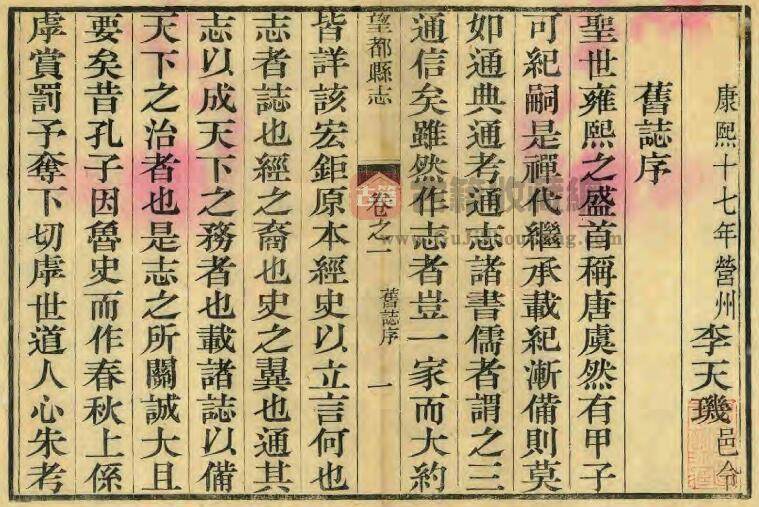 康熙十七年營州李天璣邑令
舊誌序
聖世雍熙之盛首稱唐虞然有甲子
可紀嗣是禪代繼承載紀漸備則莫
如通典通考通志諸書儒者謂之三
通信矣雖然作志者豈一家而大約
望都縣志 卷之一 舊誌序 一
皆詳該宏鉅原本經史以立言何也
志者誌也經之裔也史之翼也通其
志以成天下之務者也載諸誌以備
天下之治者也是志之所關誠大且
要矣昔孔子因魯史而作春秋上係
虖賞罰予奪下切虖世道人心朱考
古籍